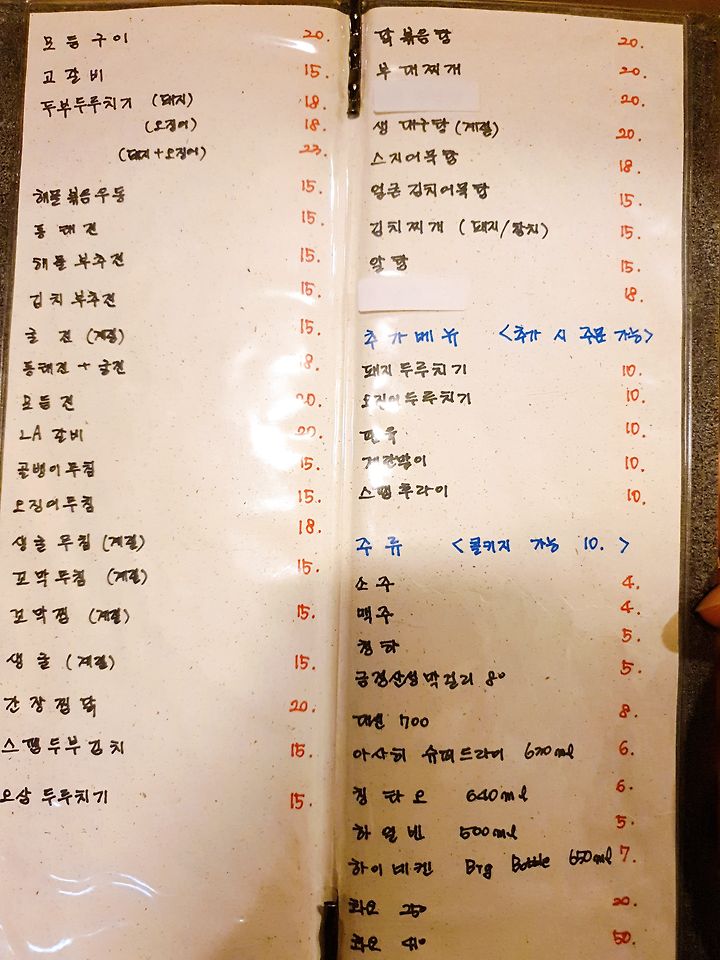 모듬구이 20.
고갈비 15.
두부두루치기 (돼지) 18.
(오징어) 18.
(돼지+오징어) 23.
해물볶음우동 15.
동태전 15.
해물부추전 15.
김치부추전 15.
굴전 (계절) 15.
동태전+굴전 18.
모듬전 20.
LA갈비 20.
골뱅이무침 15.
오징어무침 15.
생굴무침 (계절) 18.
꼬막무침 (계절) 15.
꼬막찜 (계절) 15.
생굴 (계절) 15.
간장찜닭 20.
스팸두부김치 15.
오삼두루치기 15.
닭볶음탕 20.
부대찌개 20.
20.
생대구탕 (계절) 20.
스지어묵탕 18.
얼큰김치어묵탕 15.
김치찌개 (돼지/참치) 15.
알탕 15.
18.
추가메뉴 <추가 시 주문 가능>
돼지두루치기 10.
오징어두루치기 10.
편육 10.
계란말이 10.
스팸후라이 10.
주류 <콜키지 가능 10.>
소주 4.
맥주 4.
청하 5.
금정산성막걸리 8° 5.
대선 700 8.
아사히 슈퍼드라이 630ml 6.
칭타오 640ml 6.
하얼빈 500ml 5.
하이네켄 Big Bottle 650ml 7.
화요 25° 20.
화요 41° 50.